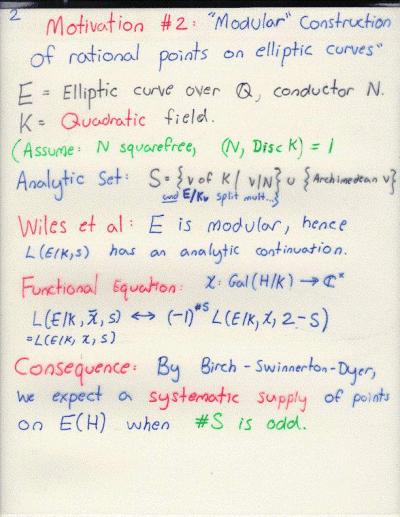 2
Motivation #2: "Modular" Construction
of rational points on elliptic curves"
E = Elliptic curve over Q, conductor N.
K = Quadratic field.
(Assume: N squarefree, (N, Disc K) = 1
Analytic Set: S = {v of K | v|N} ∪ {Archimedean v}
and E/Kv split mult...}
Wiles et al: E is modular, hence
L(E/K,s) has an analytic continuation.
Functional Equation: χ: Gal(H/K) → ℂ^x
L(E/K, χ̄, s) ↔ (-1)^#S L(E/K, χ, 2-S)
=L(E/K, χ, s)
Consequence: By Birch-Swinnerton-Dyer,
we expect a systematic supply of points
on E(H) when #S is odd.